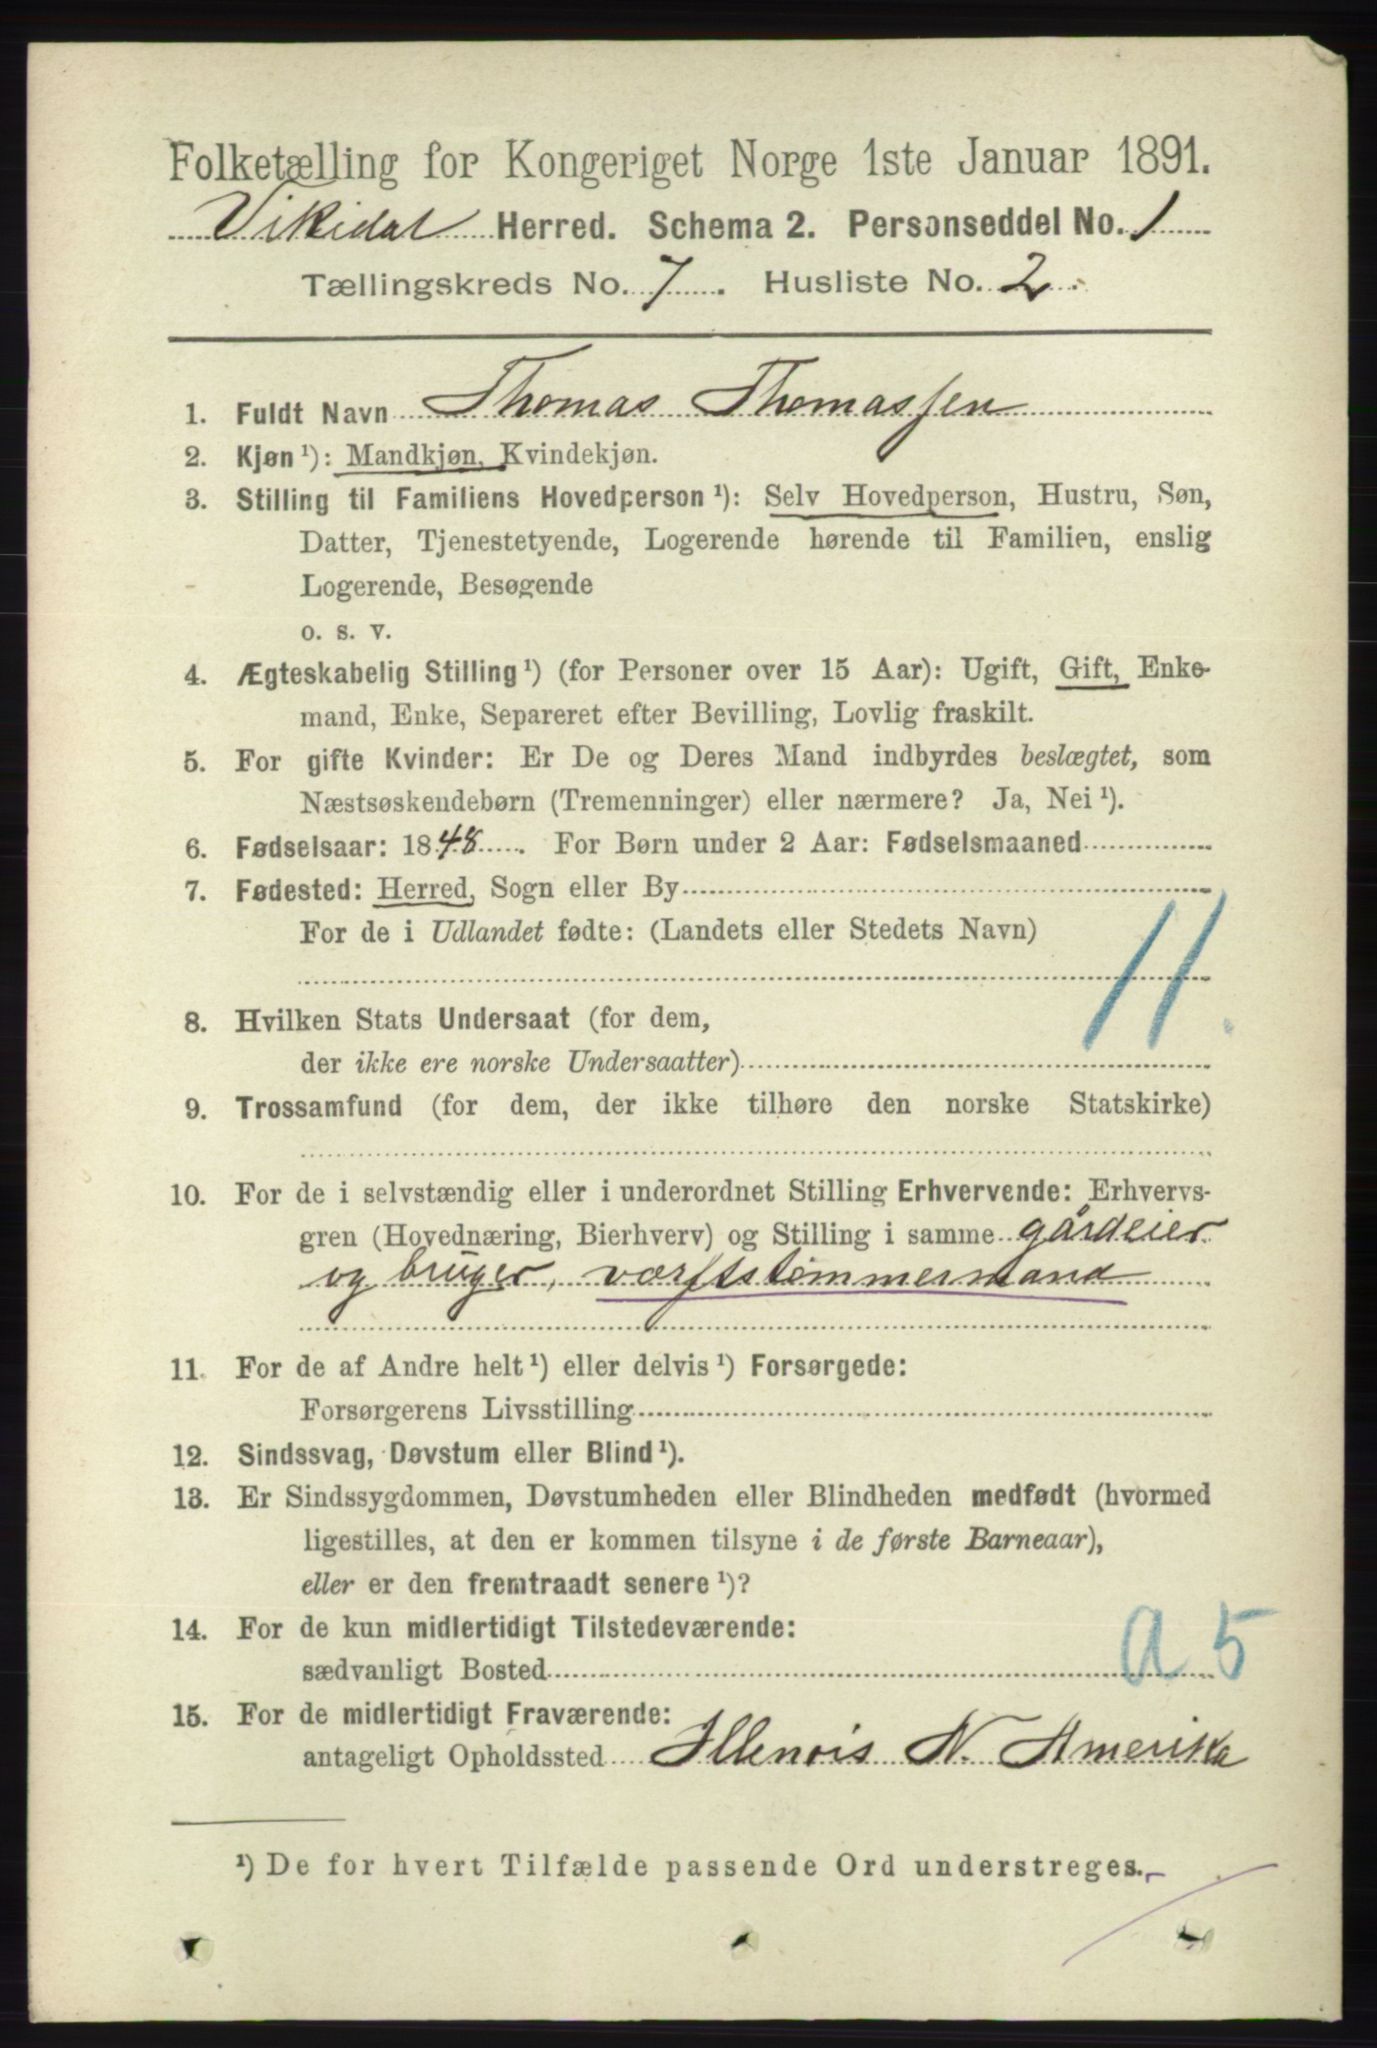 Folketælling for Kongeriget Norge 1ste Januar 1891.
Vikedal Herred. Schema 2. Personseddel No. 1
Tællingskreds No. 7. Husliste No. 2.
1. Fuldt Navn Thomas Thomassen
2. Kjøn ¹): Mandkjøn, Kvindekjøn.
3. Stilling til Familiens Hovedperson ¹): Selv Hovedperson, Hustru, Søn,
Datter, Tjenestetyende, Logerende hørende til Familien, enslig
Logerende, Besøgende
o. s. v.
4. Ægteskabelig Stilling ¹) (for Personer over 15 Aar): Ugift, Gift, Enke-
mand, Enke, Separeret efter Bevilling, Lovlig fraskilt.
5. For gifte Kvinder: Er De og Deres Mand indbyrdes beslægtet, som
Næstsøskendebørn (Tremenninger) eller nærmere? Ja, Nei ¹).
6. Fødselsaar: 1848. For Børn under 2 Aar: Fødselsmaaned
7. Fødested: Herred, Sogn eller By
For de i Udlandet fødte: (Landets eller Stedets Navn)
11.
8. Hvilken Stats Undersaat (for dem,
der ikke ere norske Undersaatter)
9. Trossamfund (for dem, der ikke tilhøre den norske Statskirke)
10. For de i selvstændig eller i underordnet Stilling Erhvervende: Erhvervs-
gren (Hovednæring, Bierhverv) og Stilling i samme gårdeier
og bruger, værftstømmermand
11. For de af Andre helt ¹) eller delvis ¹) Forsørgede:
Forsørgerens Livsstilling
12. Sindssvag, Døvstum eller Blind ¹).
13. Er Sindssygdommen, Døvstumheden eller Blindheden medfødt (hvormed
ligestilles, at den er kommen tilsyne i de første Barneaar),
eller er den fremtraadt senere ¹)?
14. For de kun midlertidigt Tilstedeværende:
sædvanligt Bosted
a 5
15. For de midlertidigt Fraværende:
antageligt Opholdssted Illenois N. Amerika
¹) De for hvert Tilfælde passende Ord understreges.